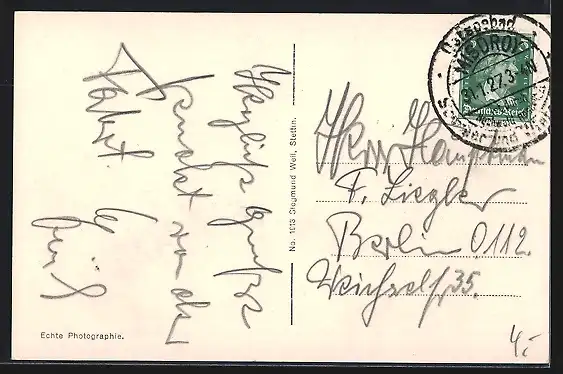 Herzliche Grüsse
sendet nach
Fahrt.
No. 1013 Siegmund Weil, Stettin.
Echte Photographie.
Ostseebad
MISDROY
Sommer und
Deutsches Reich
5
Herr Hauptmann
F. Ziegler
Berlin O112.
Weichselstr. 35.
4.-